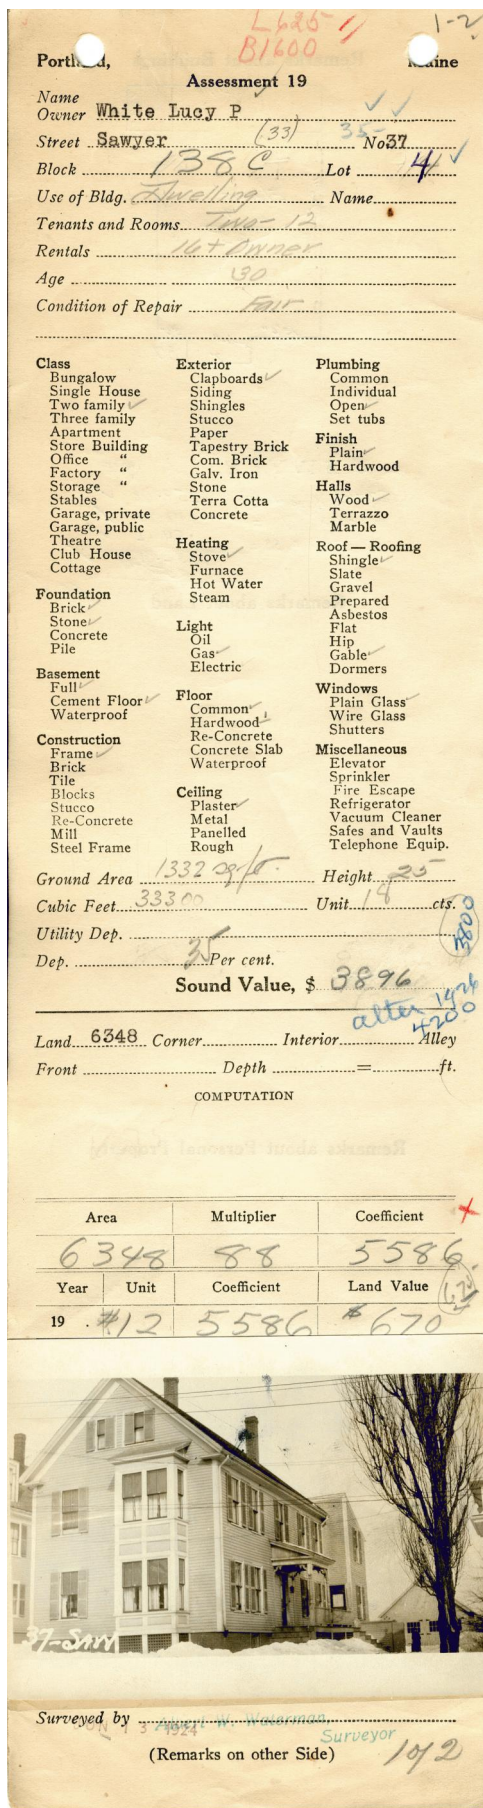 L625
B1600
1-2
Portland, Maine
Assessment 19
Name
Owner White Lucy P
Street Sawyer (33) 35- No 37
Block 138 C Lot 4
Use of Bldg. Dwelling Name
Tenants and Rooms Two-12
Rentals 16 + Owner
Age 30
Condition of Repair Fair
Class
Bungalow
Single House
Two family ✓
Three family
Apartment
Store Building
Office "
Factory "
Storage "
Stables
Garage, private
Garage, public
Theatre
Club House
Cottage
Foundation
Brick ✓
Stone ✓
Concrete
Pile
Basement
Full ✓
Cement Floor ✓
Waterproof
Construction
Frame ✓
Brick
Tile
Blocks
Stucco
Re-Concrete
Mill
Steel Frame
Exterior
Clapboards ✓
Siding
Shingles
Stucco
Paper
Tapestry Brick
Com. Brick
Galv. Iron
Stone
Terra Cotta
Concrete
Heating
Stove ✓
Furnace
Hot Water
Steam
Light
Oil
Gas ✓
Electric
Floor
Common ✓
Hardwood 1
Re-Concrete
Concrete Slab
Waterproof
Ceiling
Plaster ✓
Metal
Panelled
Rough
Plumbing
Common
Individual
Open ✓
Set tubs
Finish
Plain ✓
Hardwood
Halls
Wood ✓
Terrazzo
Marble
Roof — Roofing
Shingle ✓
Slate
Gravel
Prepared
Asbestos
Flat
Hip
Gable ✓
Dormers
Windows
Plain Glass ✓
Wire Glass
Shutters
Miscellaneous
Elevator
Sprinkler
Fire Escape
Refrigerator
Vacuum Cleaner
Safes and Vaults
Telephone Equip.
Ground Area 1332 sq. ft. Height 25
Cubic Feet 33300 Unit 18 cts.
3800
Utility Dep.
Dep. 35 Per cent.
Sound Value, $ 3896
after 1926
4200
Land 6348 Corner Interior Alley
Front Depth = ft.
COMPUTATION
Area Multiplier Coefficient
6348 88 5586
Year Unit Coefficient Land Value
625
19 . $12 5586 $670
37-SAW
Surveyed by Albert W. Waterman,
JUN 13 1924
Surveyor
(Remarks on other Side)
1 of 2